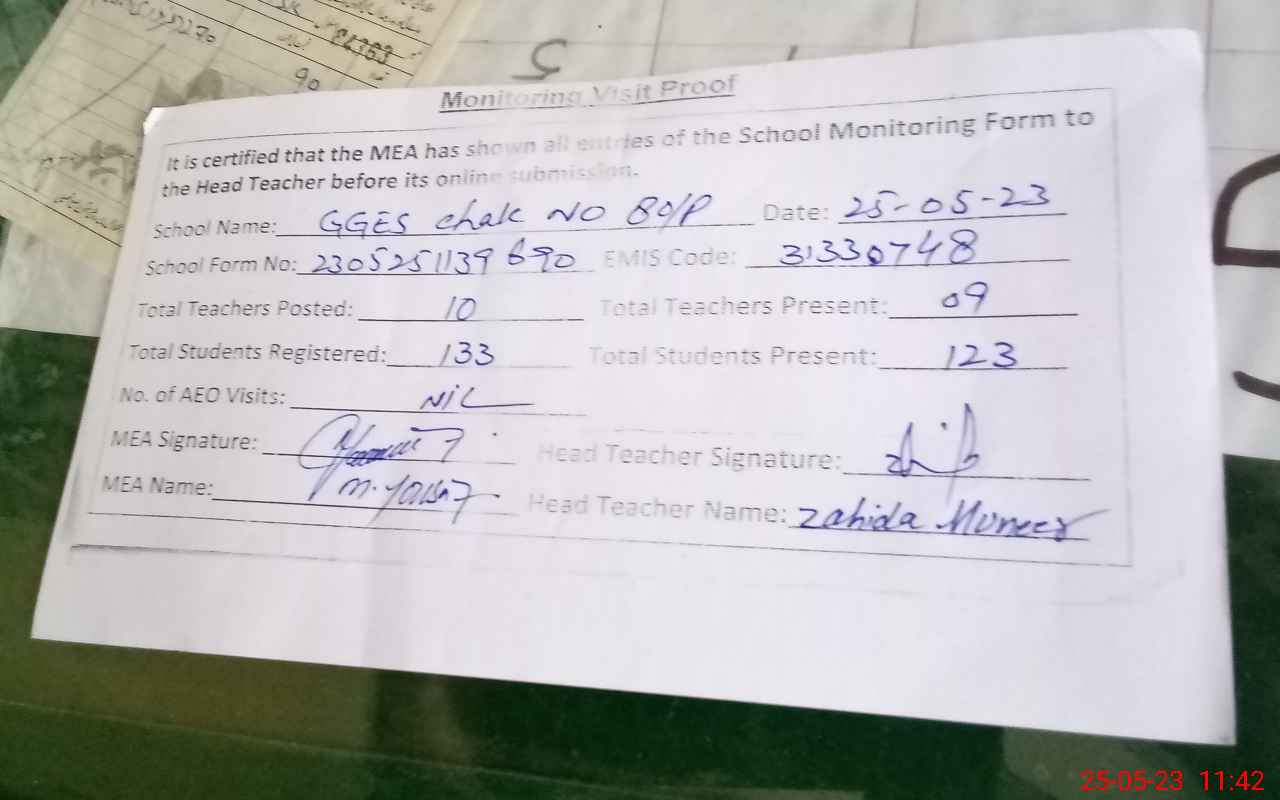 90
5
Monitoring Visit Proof
It is certified that the MEA has shown all entries of the School Monitoring Form to
the Head Teacher before its online submission.
School Name: GGES chak NO 80/P Date: 25-05-23
School Form No: 2305251139690 EMIS Code: 31330748
Total Teachers Posted: 10 Total Teachers Present: 09
Total Students Registered: 133 Total Students Present: 123
No. of AEO Visits: NiL
MEA Signature: Head Teacher Signature:
MEA Name: M. Yousaf Head Teacher Name: Zahida Muneer
25-05-23 11:42